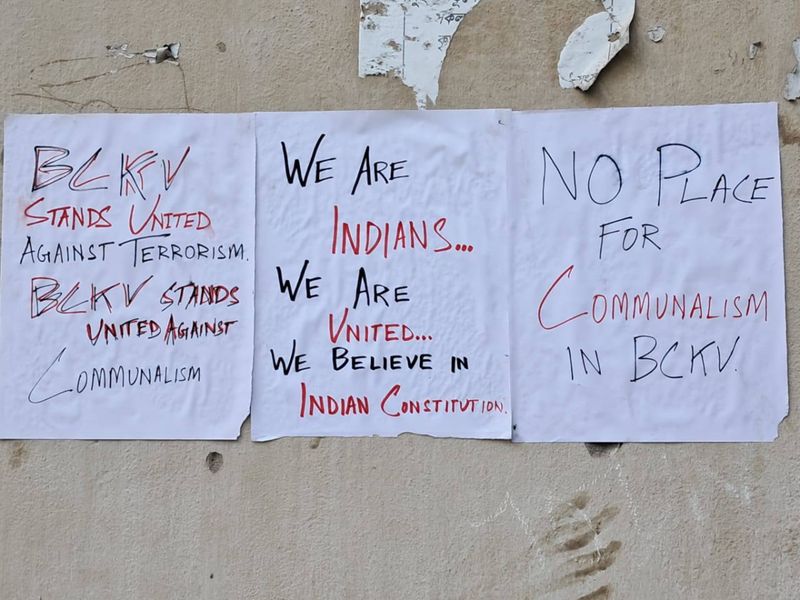 BCKV
STANDS UNITED
AGAINST TERRORISM.
BCKV STANDS
UNITED AGAINST
COMMUNALISM
WE ARE
INDIANS...
WE ARE
UNITED...
WE BELIEVE IN
INDIAN CONSTITUTION.
NO PLACE
FOR
COMMUNALISM
IN BCKV.